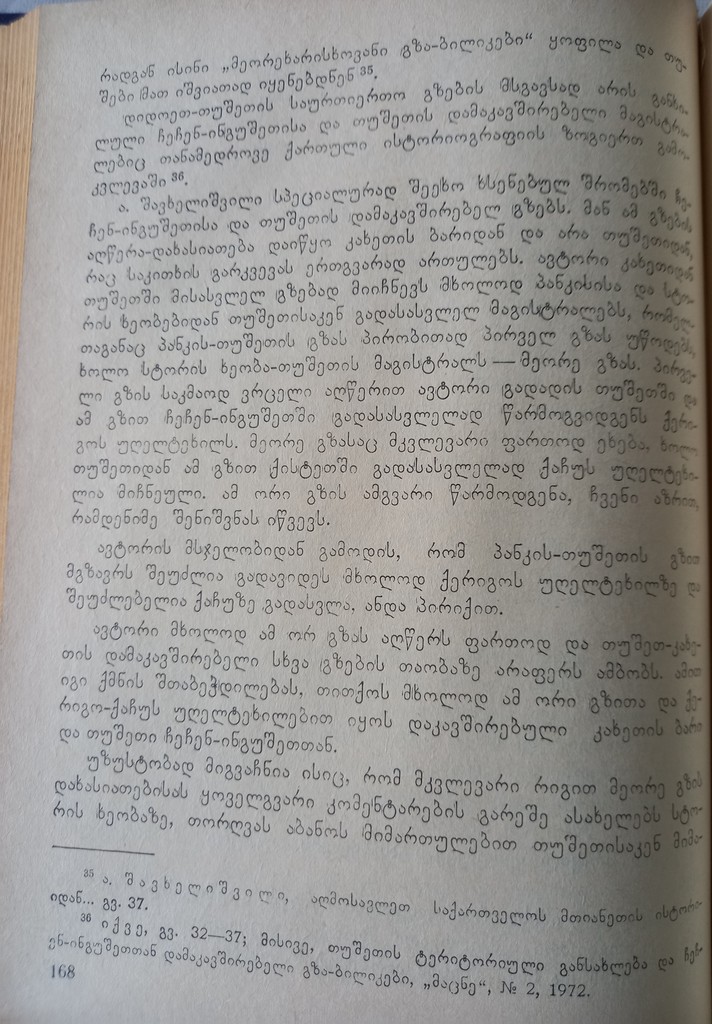 რადგან ისინი „მეორეხარისხოვანი გზა-ბილიკები“ ყოფილა და თუ-
შები მათ იშვიათად იყენებდნენ 35.
დიდოეთ-თუშეთის საურთიერთო გზების მსგავსად არის განხი-
ლული ჩეჩენ-ინგუშეთისა და თუშეთის დამაკავშირებელი მაგისტრა-
ლებიც თანამედროვე ქართული ისტორიოგრაფიის ზოგიერთ გამო-
კვლევაში 36.
ა. შავხელიშვილი სპეციალურად შეეხო ხსენებულ შრომებში ჩე-
ჩენ-ინგუშეთისა და თუშეთის დამაკავშირებელ გზებს. მან ამ გზების
აღწერა-დახასიათება დაიწყო კახეთის ბარიდან და არა თუშეთიდან,
რაც საკითხის გარკვევას ერთგვარად ართულებს. ავტორი კახეთიდან
თუშეთში მისასვლელ გზებად მიიჩნევს მხოლოდ პანკისისა და სტო-
რის ხეობებიდან თუშეთისაკენ გადასასვლელ მაგისტრალებს, რომელ-
თაგანაც პანკის-თუშეთის გზას პირობითად პირველ გზას უწოდებს,
ხოლო სტორის ხეობა-თუშეთის მაგისტრალს — მეორე გზას. პირვე-
ლი გზის საკმაოდ ვრცელი აღწერით ავტორი გადადის თუშეთში და
ამ გზით ჩეჩენ-ინგუშეთში გადასასვლელად წარმოგვიდგენს ქერი-
გოს უღელტეხილს. მეორე გზასაც მკვლევარი ფართოდ ეხება, ხოლო
თუშეთიდან ამ გზით ქისტეთში გადასასვლელად ქაჩუს უღელტეხი-
ლია მიჩნეული. ამ ორი გზის ამგვარი წარმოდგენა, ჩვენი აზრით,
რამდენიმე შენიშვნას იწვევს.
ავტორის მსჯელობიდან გამოდის, რომ პანკის-თუშეთის გზით
მგზავრს შეუძლია გადავიდეს მხოლოდ ქერიგოს უღელტეხილზე და
შეუძლებელია ქაჩუზე გადასვლა, ანდა პირიქით.
ავტორი მხოლოდ ამ ორ გზას აღწერს ფართოდ და თუშეთ-კახე-
თის დამაკავშირებელი სხვა გზების თაობაზე არაფერს ამბობს. ამით
იგი ქმნის შთაბეჭდილებას, თითქოს მხოლოდ ამ ორი გზითა და ქე-
რიგო-ქაჩუს უღელტეხილებით იყოს დაკავშირებული კახეთის ბარი
და თუშეთი ჩეჩენ-ინგუშეთთან.
უზუსტობად მიგვაჩნია ისიც, რომ მკვლევარი რიგით მეორე გზის
დახასიათებისას ყოველგვარი კომენტარების გარეშე ასახელებს სტო-
რის ხეობაზე, თორღვას აბანოს მიმართულებით თუშეთისაკენ მიმა-
35 ა. შავხელიშვილი, აღმოსავლეთ საქართველოს მთიანეთის ისტორი-
იდან... გვ. 37.
36 იქვე, გვ. 32—37; მისივე, თუშეთის ტერიტორიული განსახლება და ჩეჩ-
ენ-ინგუშეთთან დამაკავშირებელი გზა-ბილიკები, „მაცნე“, № 2, 1972.
168